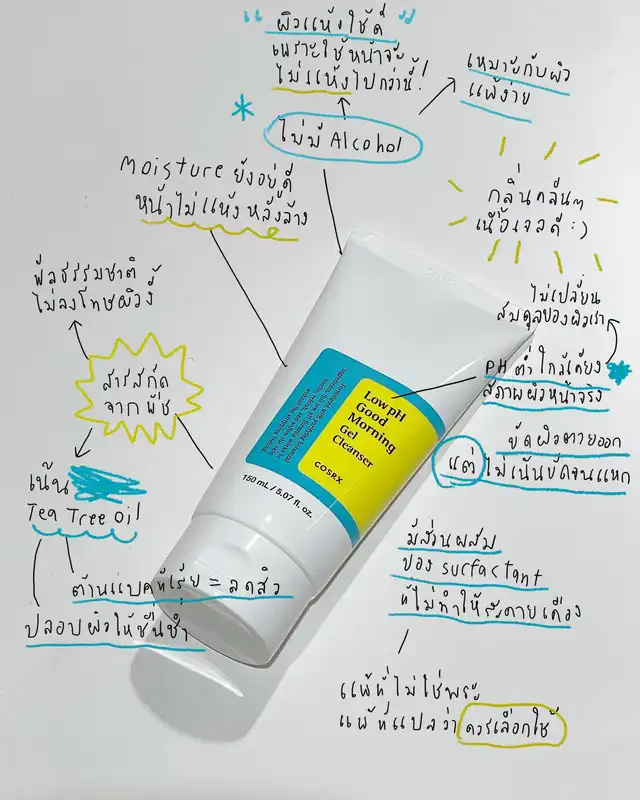 “ ผิวแห้งใช้ดี ”
เพราะใช้หน้าจะ
ไม่แห้งไปกว่านี้!
เหมาะกับผิว
แพ้ง่าย
* ไม่มี Alcohol
Moisture ยังอยู่ดี
หน้าไม่แห้ง หลังล้าง
กลิ่นคลีนๆ
เนื้อเจลดี :)
ฟีลธรรมชาติ
ไม่ลงโทษผิวงี้
สารสกัด
จากพืช
ไม่เปลี่ยน
สมดุลของผิวเรา
PH ต่ำใกล้เคียง
สภาพผิวหน้าจริง
ขัดผิวตายออก
แต่ ไม่เน้นขัดจนแหก
Low pH
Good
Morning
Gel
Cleanser
COSRX
150 mL / 5.07 fl. oz.
เน้น
Tea Tree Oil
ต้านแบคทีเรีย = ลดสิว
ปลอบผิวให้ชื่นช่ำ
มีส่วนผสม
ของ surfactant
ที่ไม่ทำให้ระคายเคือง
แพ้ที่ไม่ใช่พระ
แพ้ที่แปลว่า ควรเลือกใช้